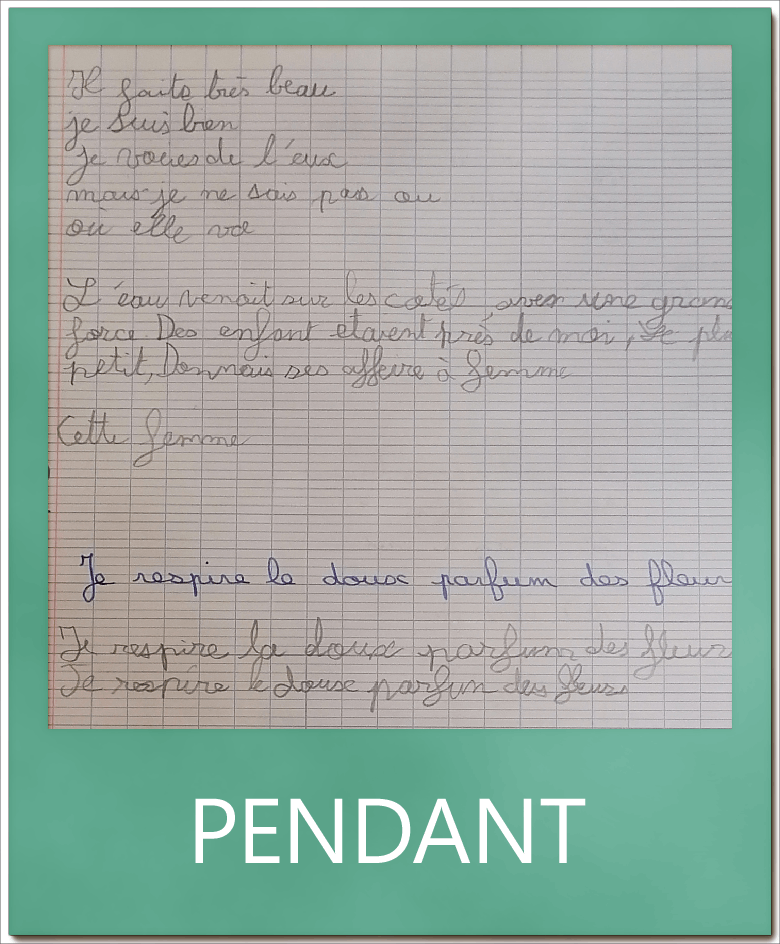 Il faite très beau
je suis bien
je voues de l'eux
mais je ne sais pas ou
où elle va
L'eau venait sur les cotés avec une grand
force Des enfant etaient près de moi, Le plu
petit, Donnais ses affeire à femme
Cette femme
Je respire le doux parfum des fleur
Je respire la doux parfum des fleur
Je respire le doux parfum des fleurs
PENDANT